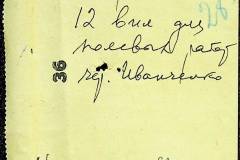 28
12 вил для
полевых работ
чер. Иванченко
36